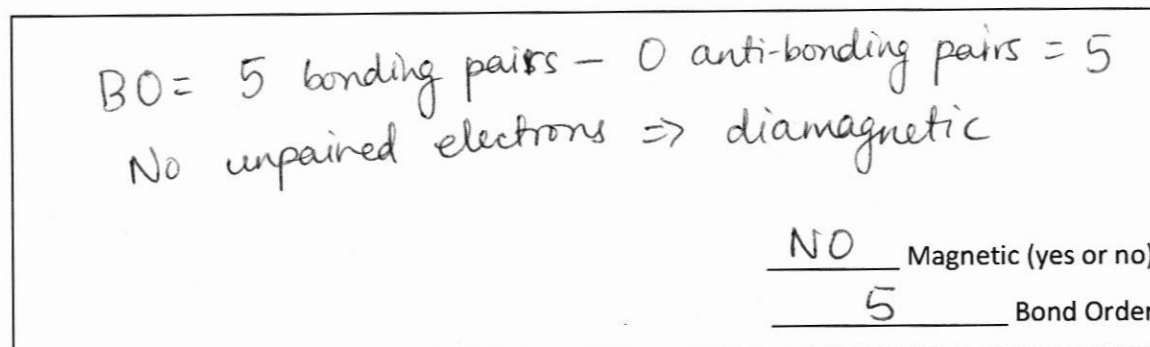 BO = 5 bonding pairs – 0 anti-bonding pairs = 5
No unpaired electrons => diamagnetic
NO Magnetic (yes or no)
5 Bond Order